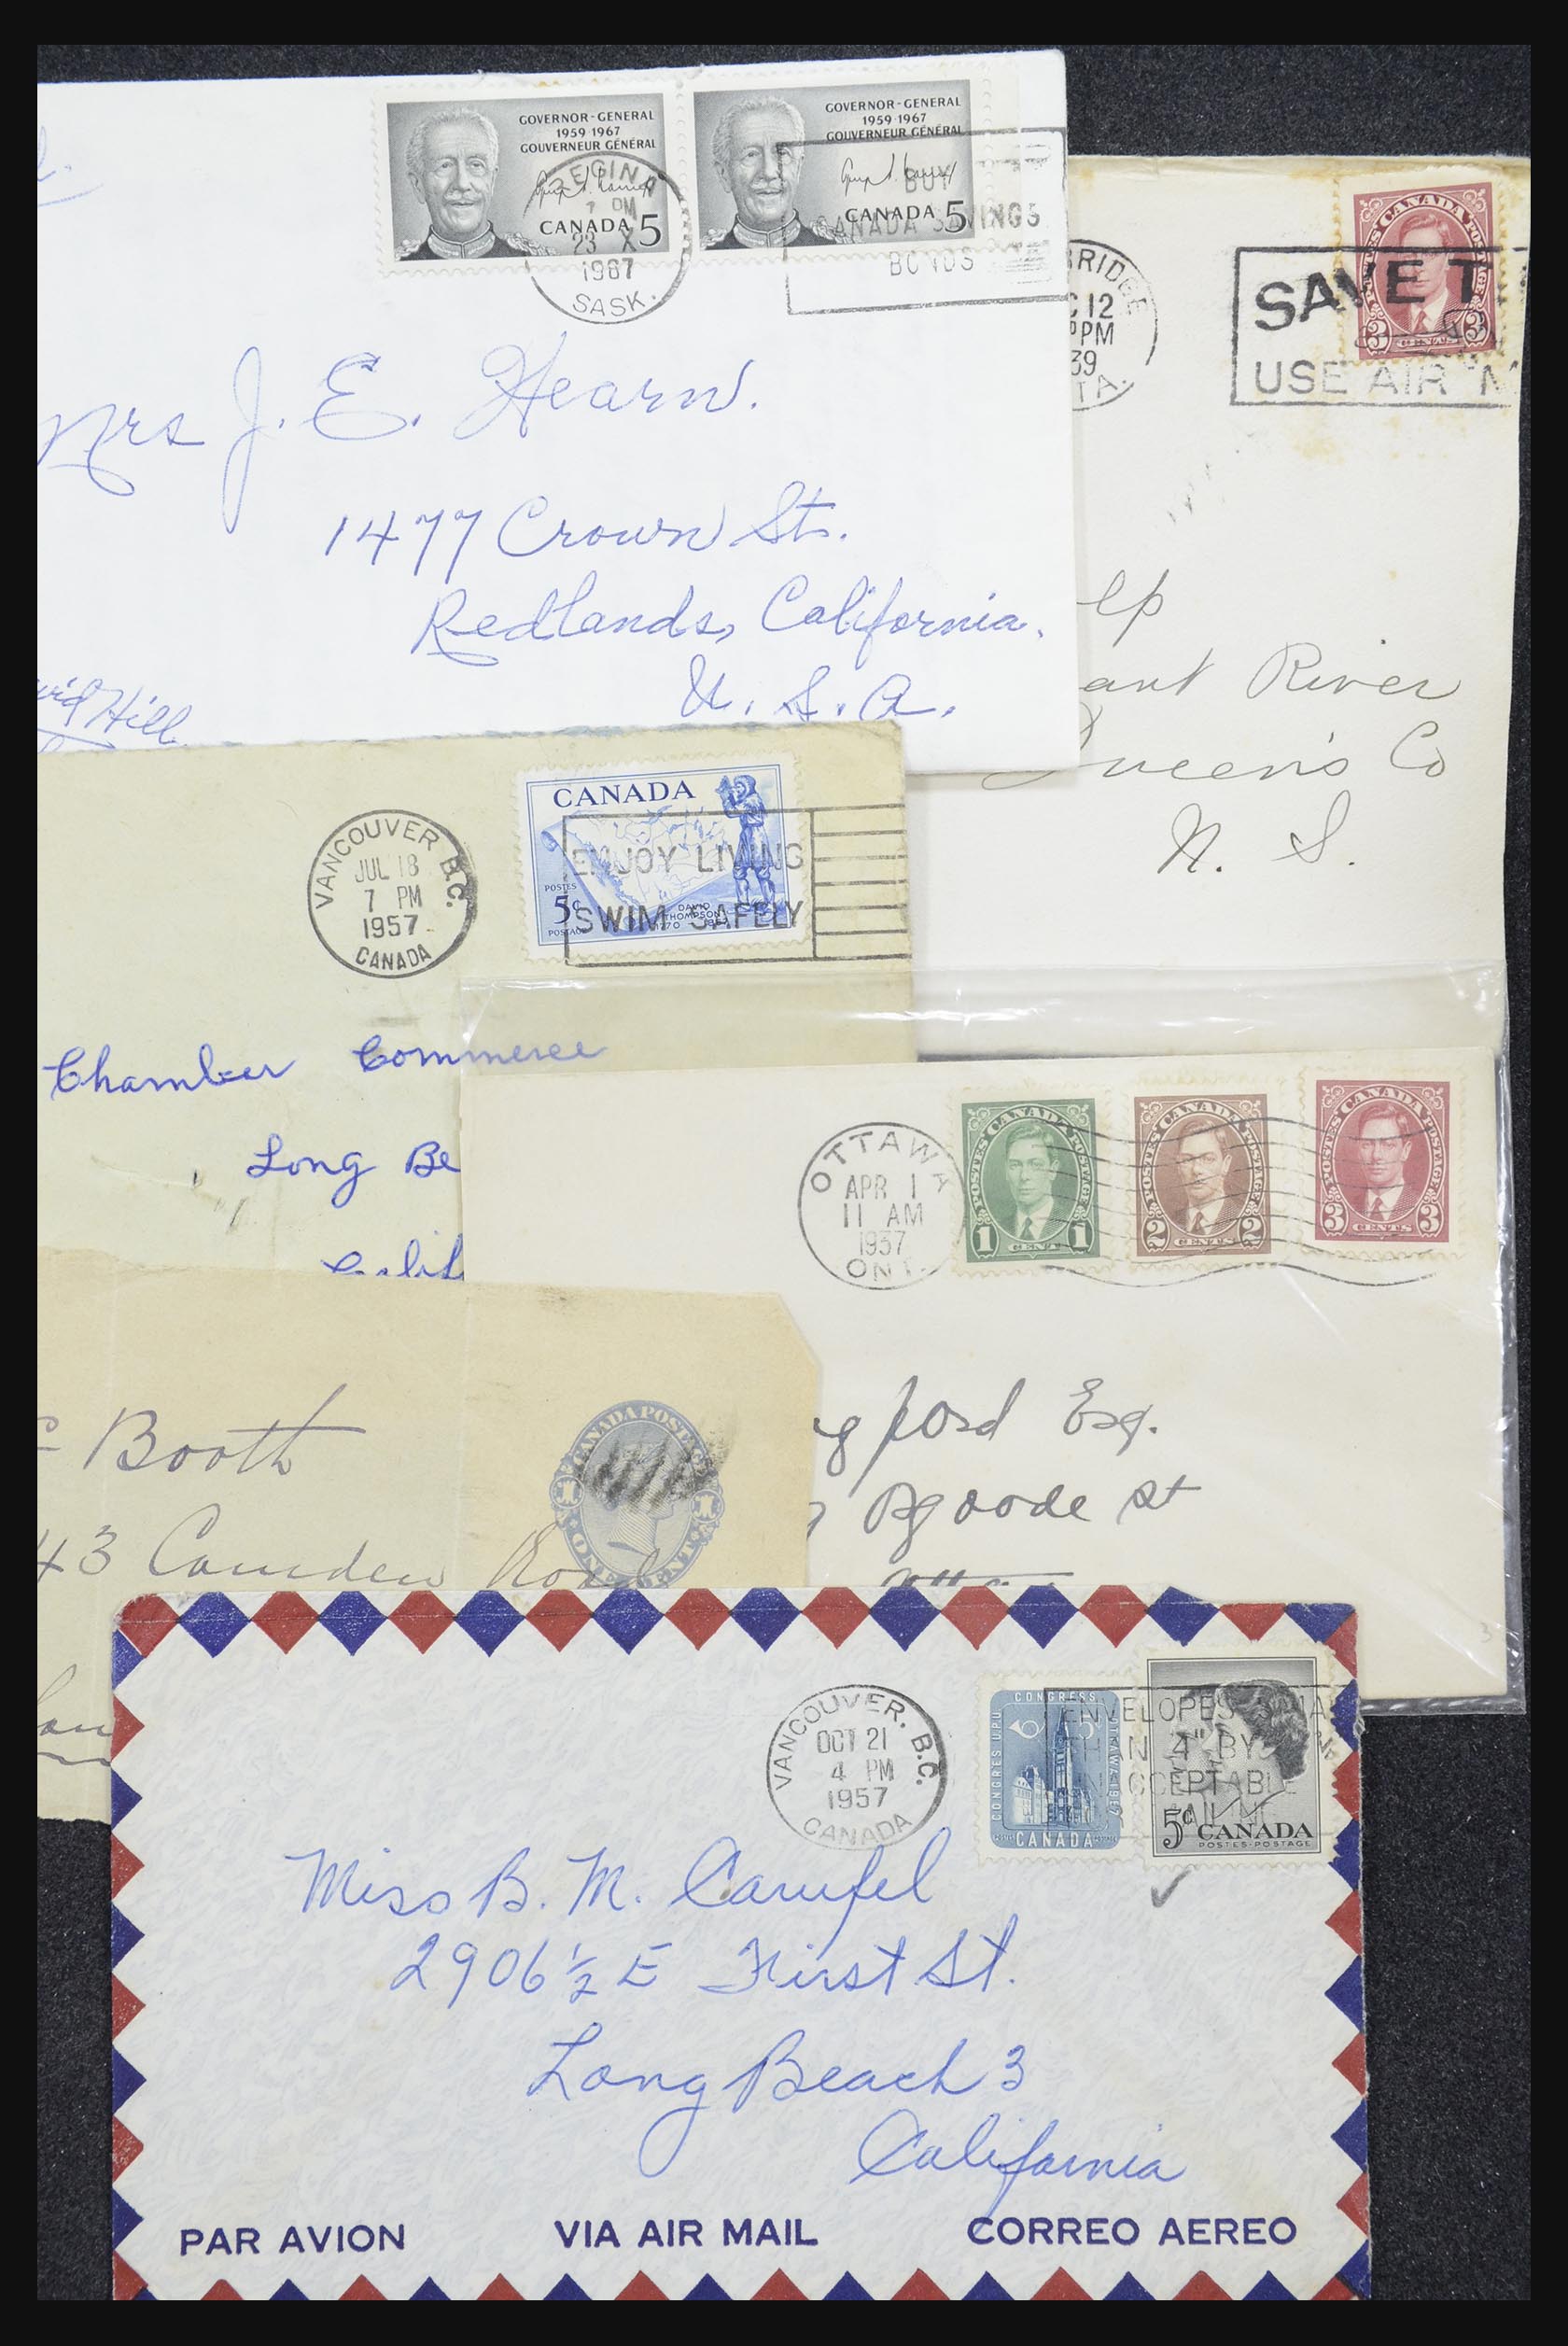 GOVERNOR-GENERAL
1959 1967
GOUVERNEUR GÉNÉRAL
CANADA 5
GOVERNOR-GENERAL
1959·1967
GOUVERNEUR GÉNÉRAL
CANADA 5
REGINA
PM
23 X
1967
SASK.
BUY
CANADA SAVINGS
BONDS
Mrs J. E. Hearn.
1477 Crown St.
Redlands, California.
U. S. A.
Hill
POSTES CANADA POSTAGE
3 CENTS 3
BRIDGE
C 12
PM
39
TA.
SAVE T
USE AIR M
elp
River
Queen's Co
N. S.
VANCOUVER B.C.
JUL 18
7 PM
1957
CANADA
CANADA
POSTES
5c
POSTAGE
DAVID
THOMPSON
ENJOY LIVING
SWIM SAFELY
Chamber Commerce
Long Be
Calif
OTTAWA
APR 1
11 AM
1937
ONT.
POSTES CANADA POSTAGE
1 CENT 1
POSTES CANADA POSTAGE
2 CENTS 2
POSTES CANADA POSTAGE
3 CENTS 3
ford Esq.
St
Booth
43 Camden Road
CANADA POSTAGE
ONE CENT
VANCOUVER. B.C.
OCT 21
4 PM
1957
CANADA
CONGRESS
CONGRES U.P.U.
OTTAWA-1957
5c
CANADA
5c CANADA
POSTES-POSTAGE
ENVELOPES SMA
THAN 4" BY
ACCEPTABLE
MAILING
Miss B. M. Camfel
2906 ½ E First St.
Long Beach 3
California
PAR AVION VIA AIR MAIL CORREO AEREO